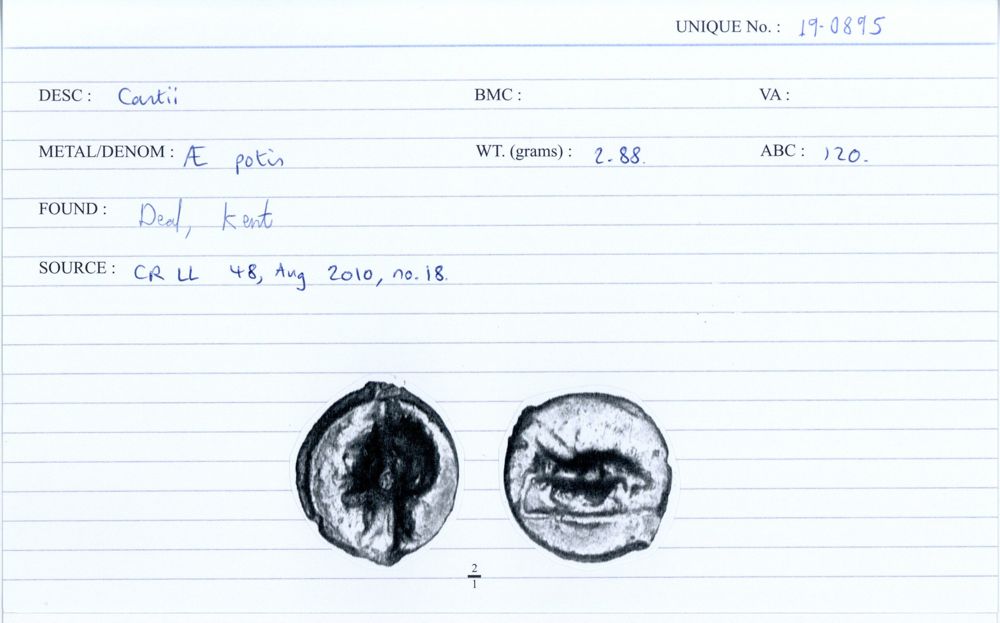 UNIQUE No. : 19-0895
DESC : Cantii BMC : VA :
METAL/DENOM : Æ potin WT. (grams) : 2.88. ABC : 120.
FOUND : Deal, Kent
SOURCE : CR LL 48, Aug 2010, no. 18.
2
1